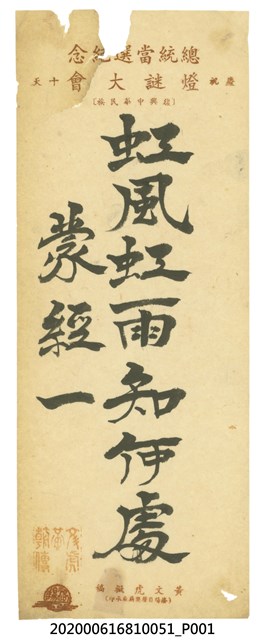 總統當選紀念
慶祝 燈謎大會 十天
虹風虹雨知何處
蒙經一
黃文虎擬稿
202000616810051_P001